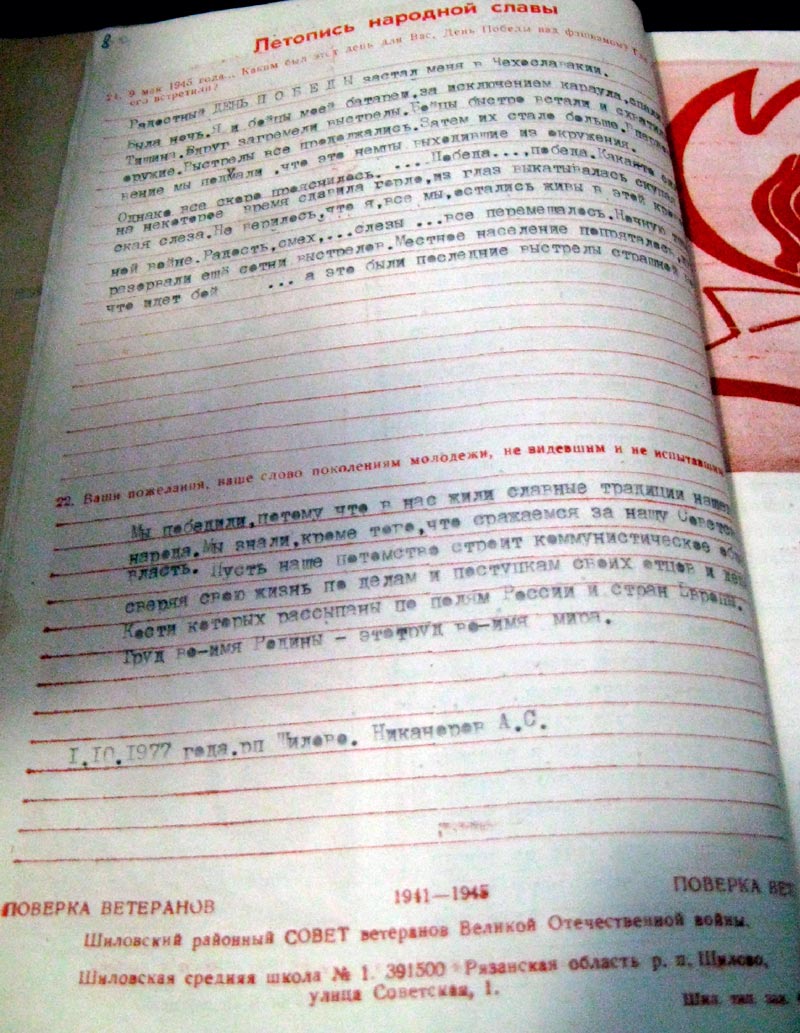 8
Летопись народной славы
21. 9 мая 1945 года... Каким был этот день для Вас, День Победы над фашизмом? Где
его встретили?
Радостный ДЕНЬ П О Б Е Д Ы застал меня в Чехословакии.
Была ночь. Я и бойцы моей батареи, за исключением караула, спали
Тишина. Вдруг загремели выстрелы. Бойцы быстро встали и
оружие. Выстрелы все продолжались. Затем их стало больше.
вение мы подумали ,что это немцы, выходившие из окружения.
Однако все скоро прояснилось. ....Победа...,победа.
на некоторое время сдавила горло, из глаз выкатывалась скупая
ская слеза. Не верилось, что я, все мы, остались живы в этой
ной войне. Радость, смех,...слезы ...все перемешалось. Ночную
разорвали ещё сотни выстрелов. Местное население попряталось,
что идет бой ... а это были последние выстрелы страшной
22. Ваши пожелания, ваше слово поколениям молодежи, не видевшим и не испытавшим
Мы победили, потому что в нас жили славные традиции нашего
народа. Мы знали, кроме того, что сражаемся за нашу
власть. Пусть наше потомство строит коммунистическое
сверяя свою жизнь по делам и поступкам своих отцов и
Кости которых рассыпаны по полям России и стран Европы.
Труд во-имя Родины – этотруд во-имя мира.
I.IO.1977 года.рп Шилово. Никаноров А.С.
ПОВЕРКА ВЕТЕРАНОВ 1941—1945 ПОВЕРКА
Шиловский районный СОВЕТ ветеранов Великой Отечественной войны.
Шиловская средняя школа № 1. 391500 Рязанская область р. п. Шилово,
улица Советская, 1.
Шил. тип. зак.